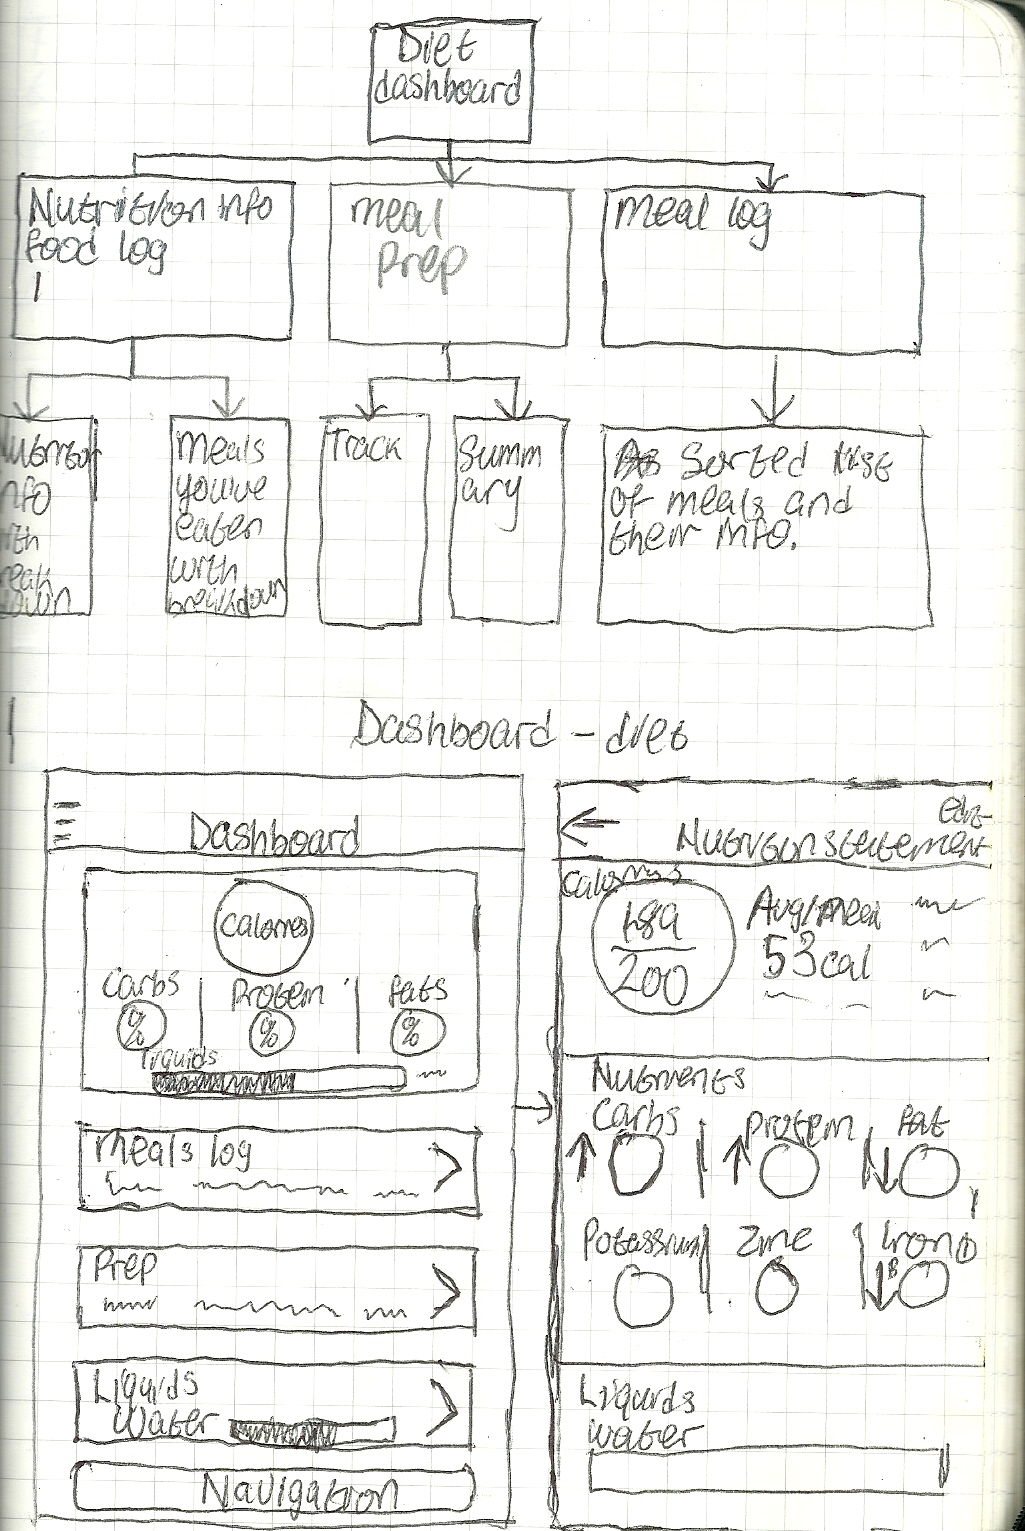 Diet
dashboard
Nutrition info
food log
meal
Prep
meal log
Nutrition
info
with
break
down
meals
you've
eaten
with
breakdown
Track
Summ
ary
Sorted list
of meals and
their info.
Dashboard - diet
Dashboard
Calories
Carbs
Protein
fats
%
%
%
liquids
meals log
Prep
Liquids
Water
Navigation
edit
Nutrition statement
Calories
189
200
Avg/meal
53cal
Nutrients
Carbs
Protein
fat
Potassium
Zinc
Iron
Liquids
water